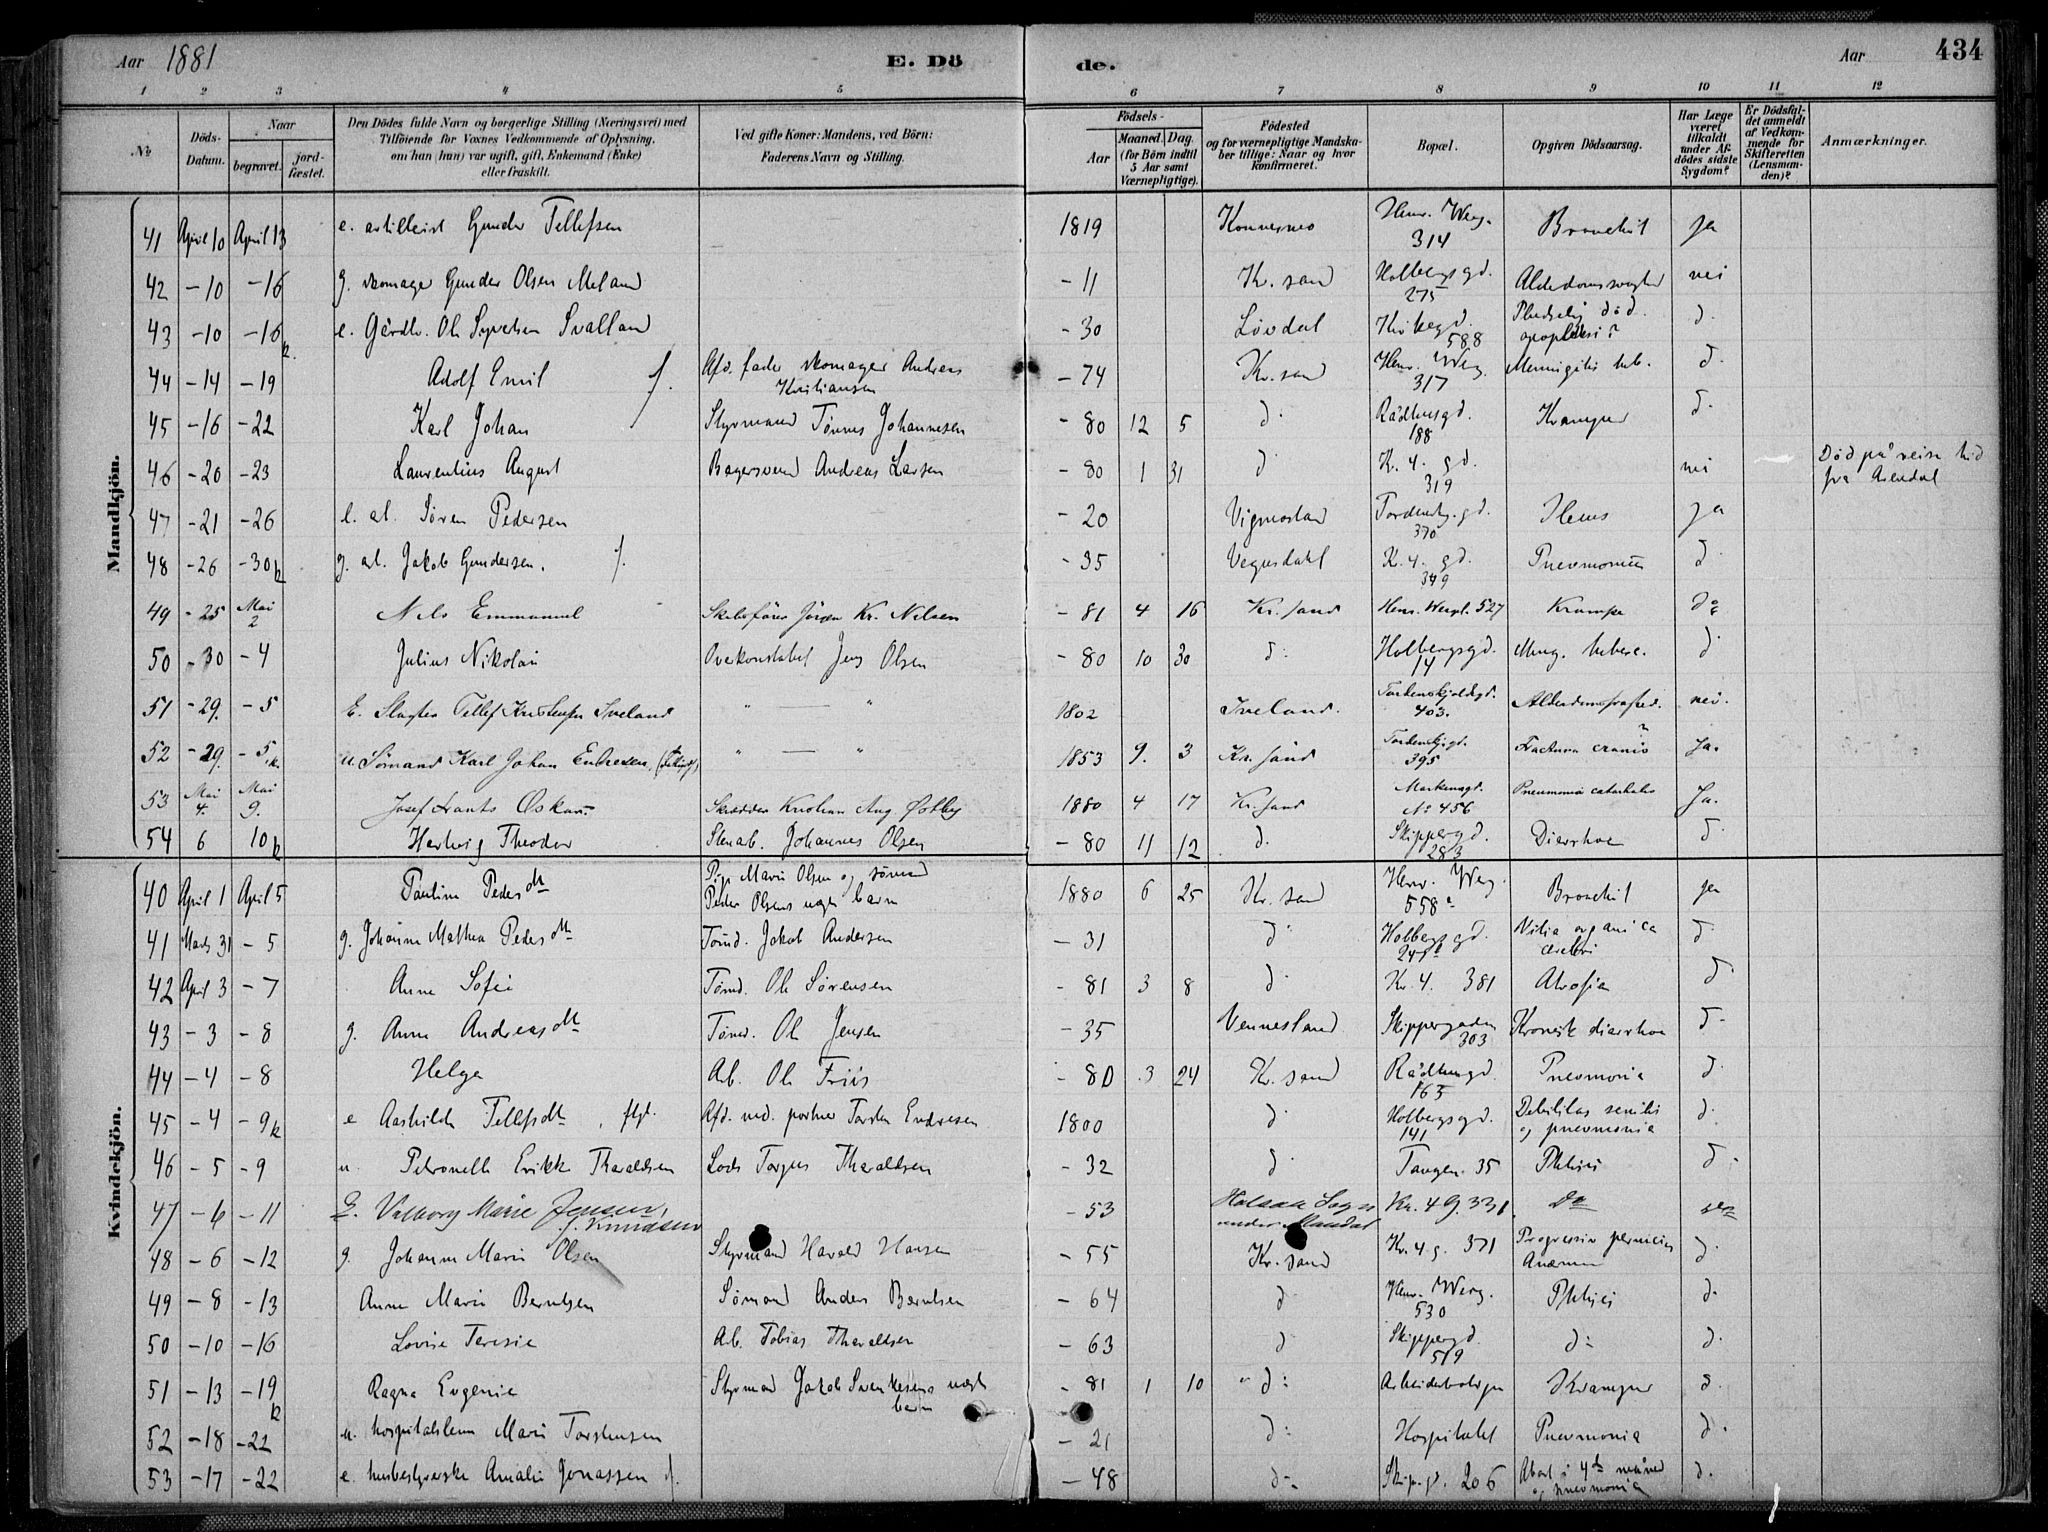 Aar 1881 E. Dö de. Aar 434
1 2 3 4 5 6 7 8 9 10 11 12
No
Döds-Datum.
Naar
begravet.
jord-fæstet.
Den Dödes fulde Navn og borgerlige Stilling (Næringsvei) med Tilföiende for Voxnes Vedkommende af Oplysning, om han (hun) var ugift, gift, Enkemand (Enke) eller fraskilt.
Ved gifte Koner: Mandens, ved Börn: Faderens Navn og Stilling.
Födsels-
Aar
Maaned. Dag.
(for Börn indtil 5 Aar samt Værnepligtige).
Födested og for værnepligtige Mandskaber tillige: Naar og hvor konfirmeret.
Bopæl.
Opgiven Dödsaarsag.
Har Læge været tilkaldt under Afdödes sidste Sygdom?
Er Dödsfaldet anmeldt af Vedkommende for Skifteretten (Lensmanden)?
Anmærkninger.
Mandkjön.
41 April 10 April 13 e. artillerist Gunder Tellefsen 1819 Henr. Werg. 314 Bronchit ja
42 -10 -16 g. skomager Gunder Olsen Meland -11 Kr.sand Holbergsgd. 275 nei
43 -10 -16 k. e. Gårdbr. Ole Syvertsen Svalland -30 Løvdal 588 Pludselig død. apopleksi? d.
44 -14 -19 Adolf Emil f. Afd. fader skomager Andreas Kristiansen -74 Kr.sand Henr. Werg. 317 Meningitis tub. d
45 -16 -22 Karl Johan Styrmand Tønnes Johannesen -80 12 5 d. Rådhusgd. 188 Kramper d.
46 -20 -23 Laurentius August Bagersvend Andreas Larsen -80 1 31 d Kr. 4. gd. 319 nei Død på reise hid fra Arendal
47 -21 -26 e. ar. Søren Pedersen -20 Vigmostad Tordenskj.gd. 370 Ileus ja
48 -26 -30 k g. ar. Jakob Gundersen. f. -35 Vegusdahl Kr. 4. gd. 349 Pneumoni d
49 -25 Mai 2 Nils Emmanuel Skibsfører Jörgen Kr. Nilsen -81 4 16 Kr.sand Henr. Wergl. 527 Krampe do
50 -30 -4 Julius Nikolai Overkonstabel Jens Olsen -80 10 30 d. Holbergsgd. 14 Meng. tuberc. d
51 -29. -5 E. Slagter Tellef Kristensen Iveland " — " 1802 Iveland. Tordenskjoldsgd. 403. nei.
52 -29. -5. k. u. Sømand Karl Johan Endresen, " — " 1853 9. 3 Kr.sand Tordenskj.gd. 395 Fractura cranii Ja.
53 Mai 4. Mai 9. Josef Frants Oskar Skrædder Kristian Aug. Østby 1880 4 17 Kr.sand Markensgd. No 456 Pneumonia catarhalis Ja.
54 6 10 k Hertvig Theodor Stenarb. Johannes Olsen -80 11 12 d. Skippergd. 283 Diarrhoe d
Kvindekjön.
40 April 1 April 5 Pauline Pedersdtr Pige Marie Olsen og sömand Peder Olsens uægte barn 1880 6 25 Kr.sand Henr. Werg. 558 Bronchit ja
41 Marts 31 -5 g. Johanne Mathea Pedersdtr Tømd. Jakob Andersen -31 d Holbergsgd. Vitia organica cerebri d
42 April 3 -7 Anne Sofie Tømd. Ole Sørensen -81 3 8 d Kr. 4. 381 Atrofia d
43 -3 -8 g. Anne Andreasdtr Tømd. Ole Jensen -35 Vennesland Skippergaden 303 Kronisk diarrhoe d
44 -4 -8 Helga Arb. Ole Friis -80 3 24 Kr.sand Rådhusgd. 165 Pneumonia d.
45 -4 -9 k e Aashilde Tellefsdtr, flgt. Afd. ved. portner Torsten Endresen 1800 d Holbergsgd. 141 Debilitas senilis og pneumonia d.
46 -5 -9 u. Petronelle Erikke Tharaldsen Lods Torgus Tharaldsen -32 d Tangen. 35 Phtisis d
47 -6 -11 E. Valborg Marie Jensen, f. Knudsen -53 Halsaa Sogn under Mandal Kr. 4 G. 331 Do
48 -6 -12 g Johanne Marie Olsen Styrmand Harald Hansen -55 Kr.sand Kr. 4 g. 371 Progressiv pernicius Anæmi d.
49 -8 -13 Anne Marie Berntsen Sømand Anders Berntsen -64 d Henr. Werg. 530 Phtisis d.
50 -10 -16 Lovise Teresie Arb. Tobias Tharaldsen -63 d Skippergd. 519 d: d.
51 -13 -19 k Ragna Evgenie Styrmand Jakob Svenkesens uægte barn -81 1 10 d: Arbeiderboliger Kramper d.
52 -18 -22 u. hospitalslem Marie Torstensen -21 d: Hospitalet Pneumonia d.
53 -17 -22 e. husbestyrerske Amalie Jonassen f. -48 d: Skip.gd. 206 Abort i 4de måned og pneumonia d.